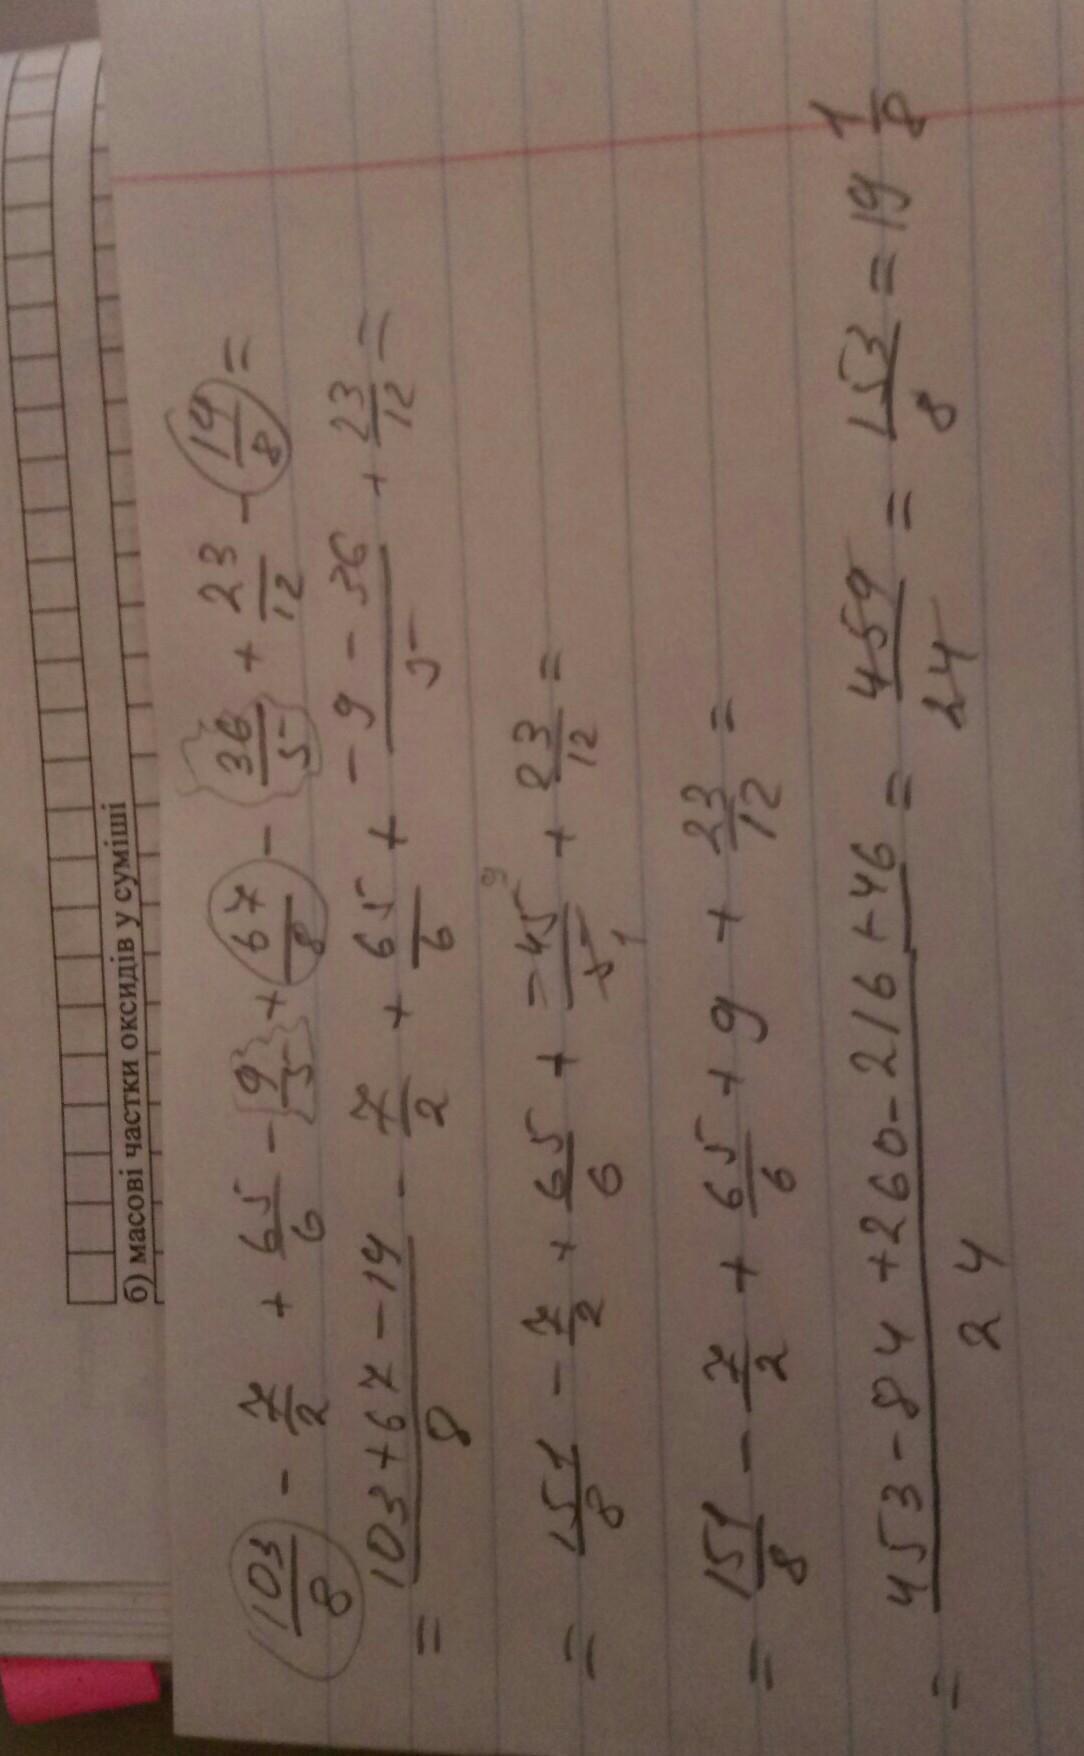 б) масові частки оксидів у суміші
103/8 - 7/2 + 65/6 - {9/5} + 67/8 - {36/5} + 23/12 - 19/8 =
= (103+67-19)/8 - 7/2 + 65/6 + (-9-36)/5 + 23/12 =
= 151/8 - 7/2 + 65/6 + -45 9/5 1 + 23/12 =
= 151/8 - 7/2 + 65/6 + 9 + 23/12 =
= (453-84+260-216+46)/24 = 459/24 = 153/8 = 19 1/8